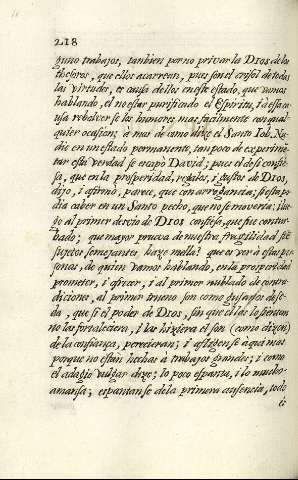 218
guno trabajos, tambien por no privar la DIOS de los
thesoros, que ellos acarrean, pues son el crisol de todas
las virtudes, es causa de llos en este estado, que vamos
hablando, el no estar purificado el Espiritu, i à essa ca
usa rebolverse los humores, mas facilmente con qual-
quier ocasion; à mas de como dize el Santo Iob, Na-
die en un estado permanente, tan poco de experimē
tar esta verdad se escapò David; pues el de si confie-
sa, que en la prosperidad, regalos, i gustos de DIOS,
dijo, i afirmò, parece, que con arrogancia; si esta po
dia caber en un Santo pecho, que no se moveria; i lue
go al primer desvio de DIOS confiesa, que fue contur-
bado; que mayor prueva de nuestra fragilidad si ē
sujetos semejantes haze mella! que es ver à estas per-
sonas, de quien vamos hablando, en la prosperidad
prometer, i ofrecer, i al primer nublado de contra-
dicione, al primer trueno son como gusanos de se-
da, que si el poder de DIOS, sin que ellas lo sientan
no las fortaleciera, i las hiziera el son (como dizen)
de la confiança, perecieran; i afligense à qua mas
porque no estàn hechas à trabajos grandes; i como
el adagio vulgar dize; lo poco espanta, i lo mucho
amansa; espantanse de la primera ausencia, todo